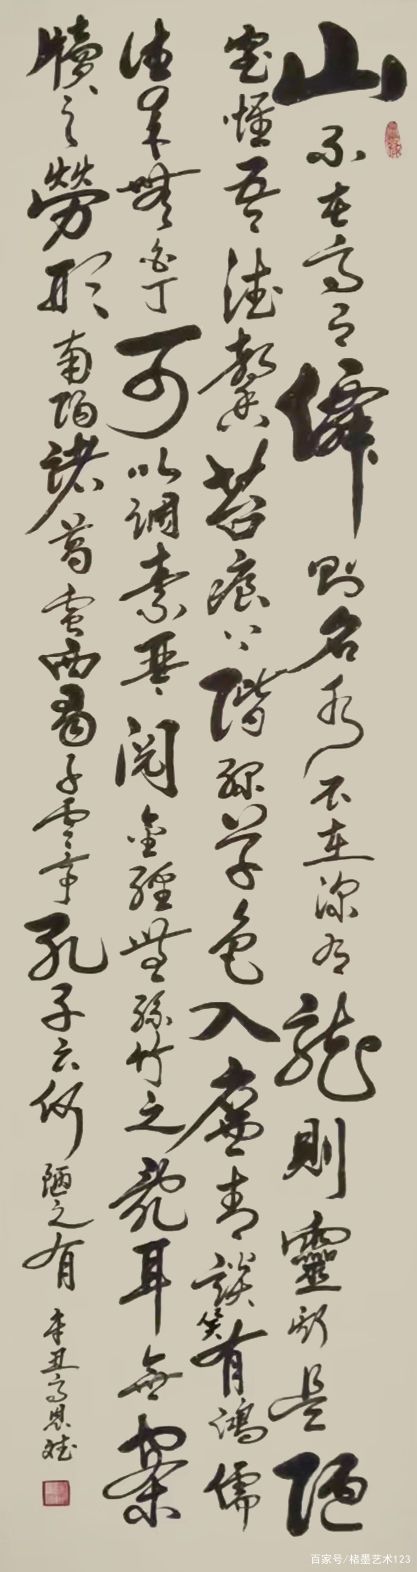 山不在高有僊則名水不在深有龍則靈斯是陋
室惟吾德馨苔痕上階綠草色入簾青談笑有鴻儒
往來無白丁可以調素琴閱金經無絲竹之亂耳無案
牘之勞形南陽諸葛廬西蜀子雲亭孔子云何陋之有
辛丑高恩斌
百家号/楮墨艺术123